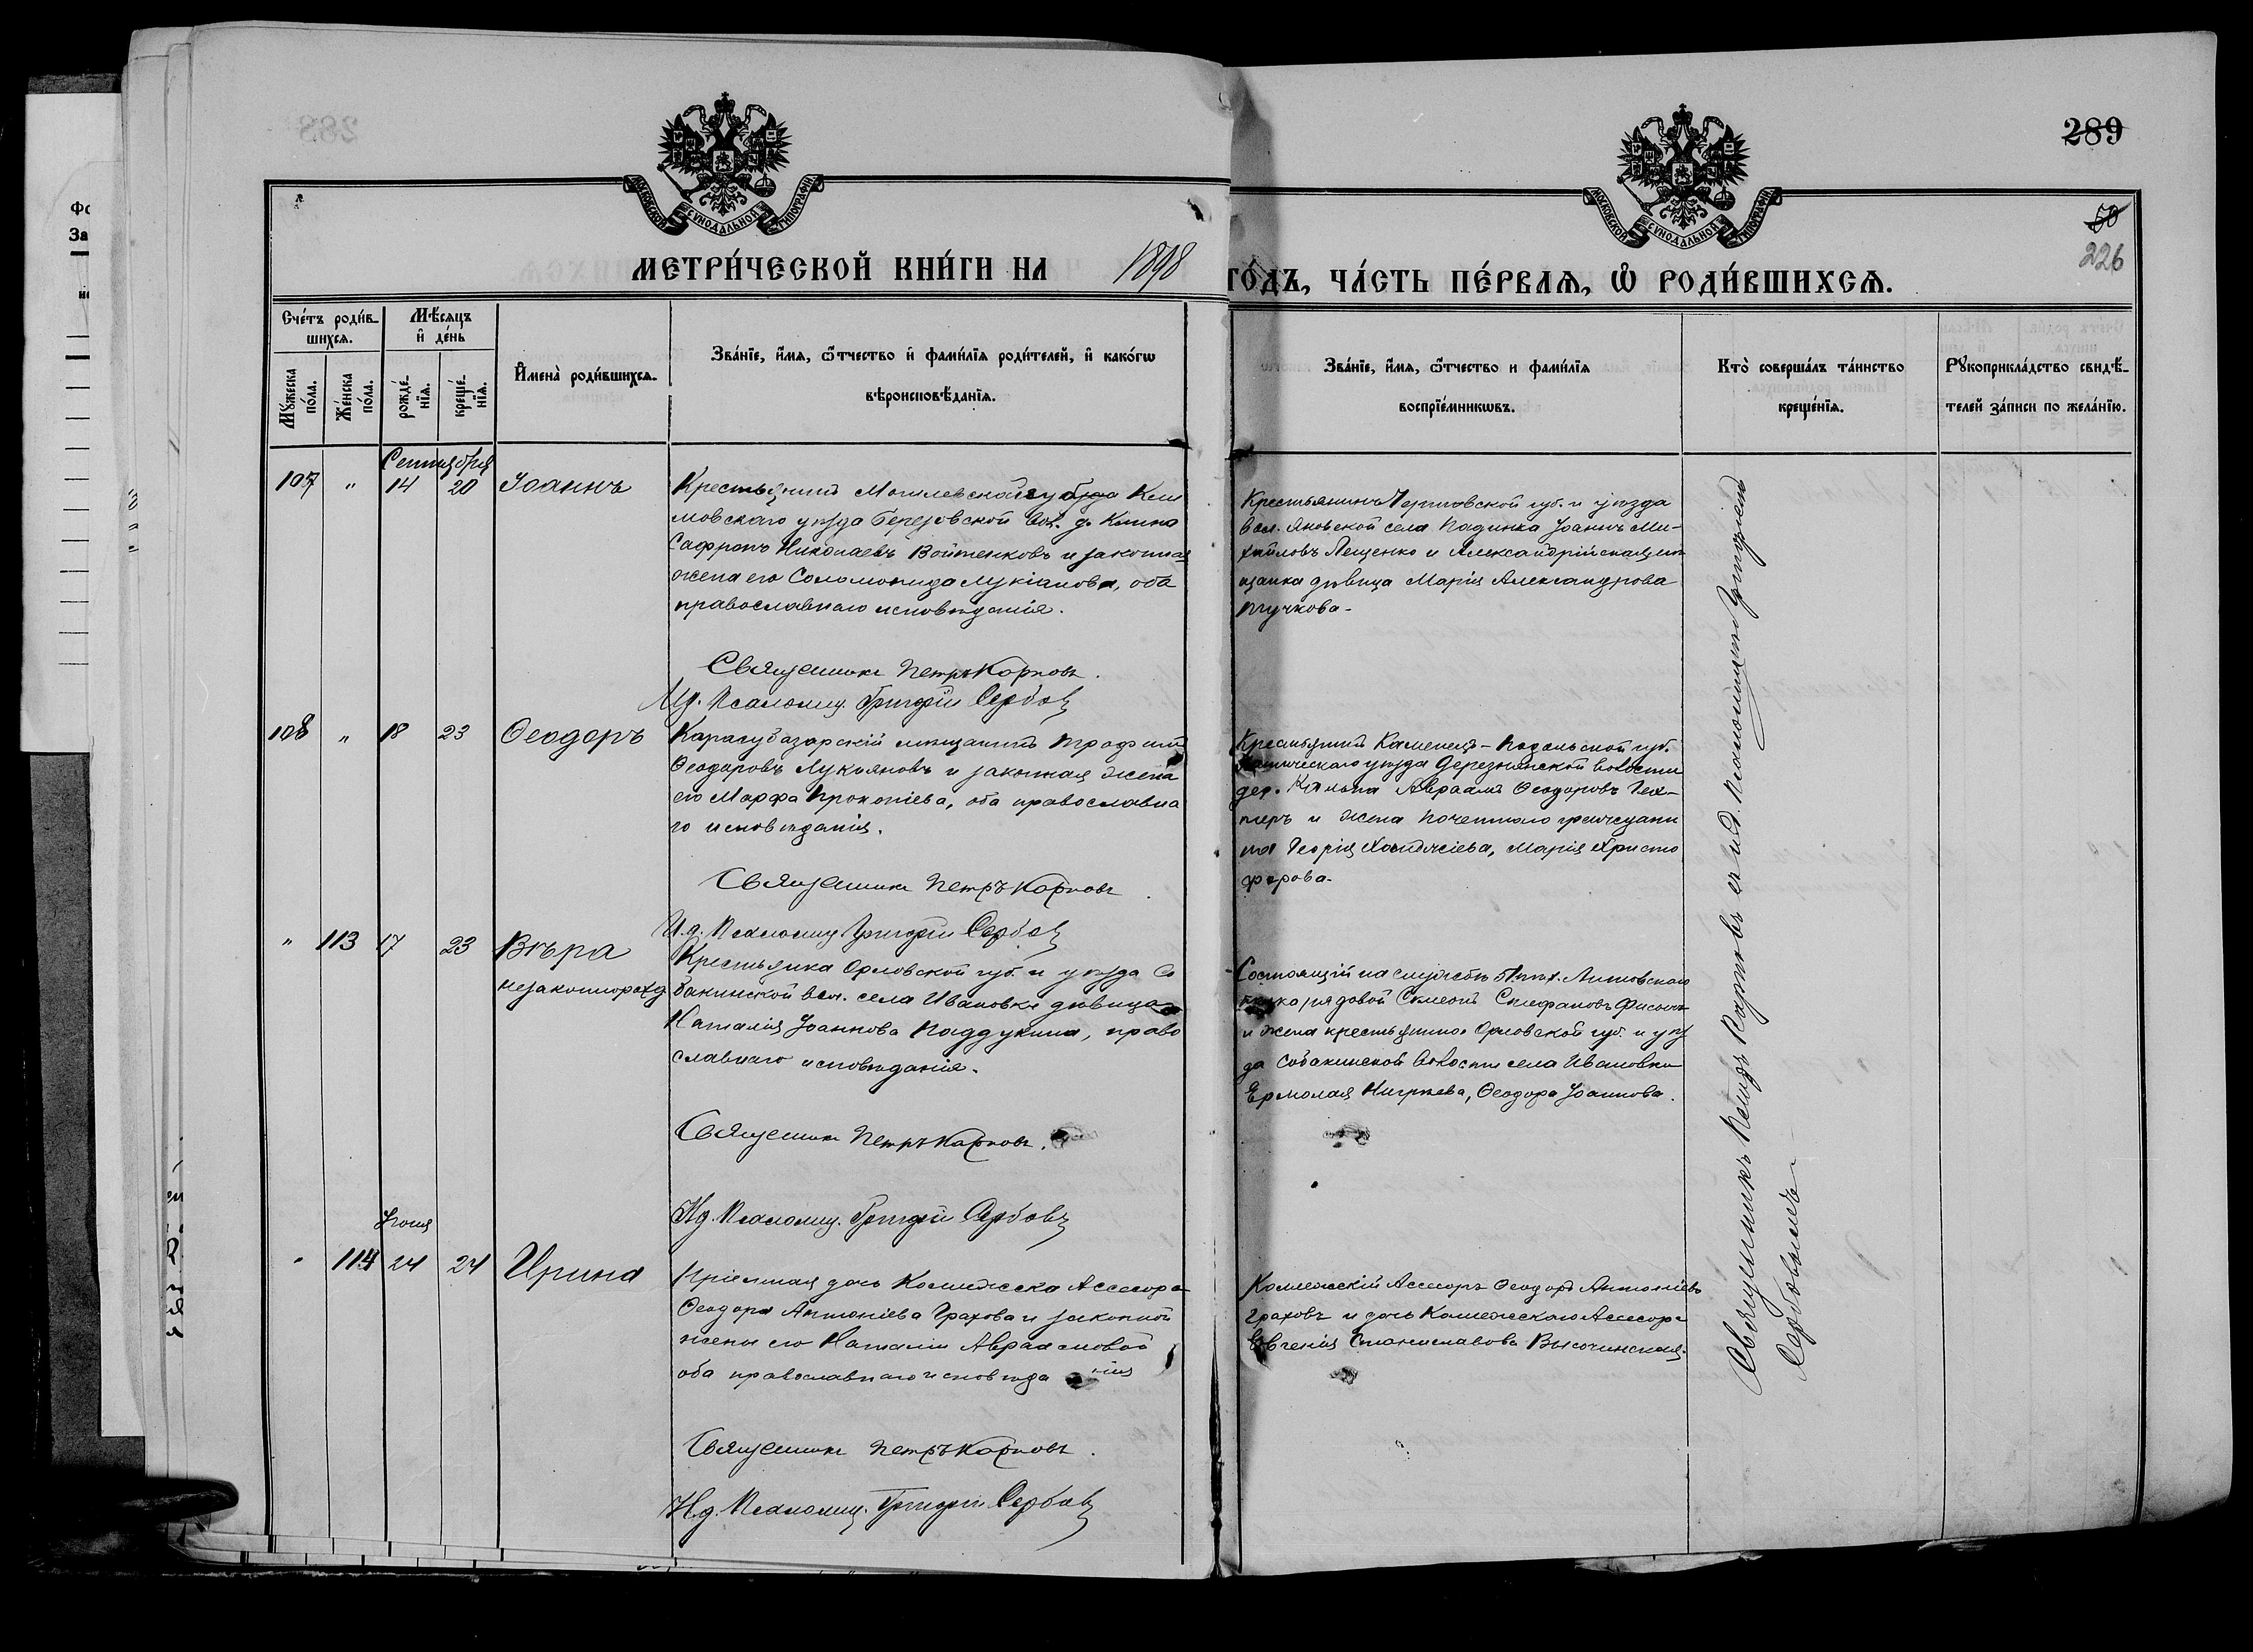 289
50
226
МОСКОВСКОЙ СѴНОДАЛЬНОЙ ТИПОГРАФІИ
МОСКОВСКОЙ СѴНОДАЛЬНОЙ ТИПОГРАФІИ
МЕТРИ́ЧЕСКОЙ КНИ́ГИ НА 1898 ГО́ДЪ, ЧА́СТЬ ПЕ́РВАЯ, Ѡ РОДИ́ВШИХСЯ.
Сче́тъ роди́в-
шихся.
Мѣ́сяцъ
и де́нь
Му́жеска
по́ла.
Же́нска
по́ла.
рожде́-
нїя.
креще́-
нїя.
И҆мена̀ роди́вшихся.
Зва́нїе, и҆́мя, ѻ҆́тчество и҆ фами́лїя роди́телей, и҆ како́гѡ
вѣроисповѣ́данїя.
Зва́нїе, и҆́мя, ѻ҆́тчество и фами́лїя
воспрїе́мникѡвъ.
Кто̀ соверша́лъ та́инство
креще́нїя.
Рꙋкоприкла́дство свидѣ́-
телей за́писи по жела́нїю.
Сентября
107 " 14 20 Іоаннъ
Крестьянинъ Могилевской губ. Кли
мовскаго уѣзда Березовской вол. д. Клина
Сафронъ Николаевъ Войтенковъ и законная
жена его Соломонида Лукіанова, оба
православнаго исповѣданія.
Священникъ Петръ Карповъ.
И.д. Псаломщ. Григорій Сербовъ
Крестьянинъ Черниговской губ. и уѣзда
вол. Яновской села Пединка Іоаннъ Ми-
хайловъ Лещенко и Александрійская мѣ
щанка дѣвица Марія Александрова
Тучкова.
108 " 18 23 Ѳеодоръ
Карасубазарскій мѣщанинъ Трофимъ
Ѳеодоровъ Лукьяновъ и законная жена
его Марфа Прокопіева, оба православна
го исповѣданія.
Священникъ Петръ Карповъ
И.д. Псаломщ. Григорій Сербовъ
Крестьянинъ Каменецъ-Подольской губ.
уѣзда Деребчинской волости
дер. Авраамъ Ѳеодоровъ
и жена почетнаго гражданина
Георгія Марія Христо
форова.
" 113 17 23 Вѣра
незаконнорожд
Крестьянка Орловской губ. и уѣзда Со
бакинской вол. села Ивановки дѣвица
Наталія Іоаннова Паддукина, право
славнаго исповѣданія.
Священникъ Петръ Карповъ.
И.д. Псаломщ. Григорій Сербовъ
Состоящій на службѣ 51 пѣх. Литовскаго
полка рядовой Симеонъ Стефановъ
и жена крестьянина Орловской губ. и уѣз
да Собакинской волости села Ивановки
Ермолая Ѳеодора Іоаннова.
Іюня
" 114 24 24 Ирина
Пріемная дочь Коллежска Ассесора
Ѳеодора Антоніева Грахова и законной
жены его Наталіи Авраамовой
оба православнаго исповѣданія
Священникъ Петръ Карповъ.
И.д. Псаломщ. Григорій Сербовъ
Коллежскій Ассесоръ Ѳеодоръ Антоніевъ
Граховъ и дочь Коллежскаго Ассесора
Евгенія Станиславова Высочинская.
Священникъ Петръ Карповъ съ и.д. псаломщика Григоріемъ
Сербовымъ